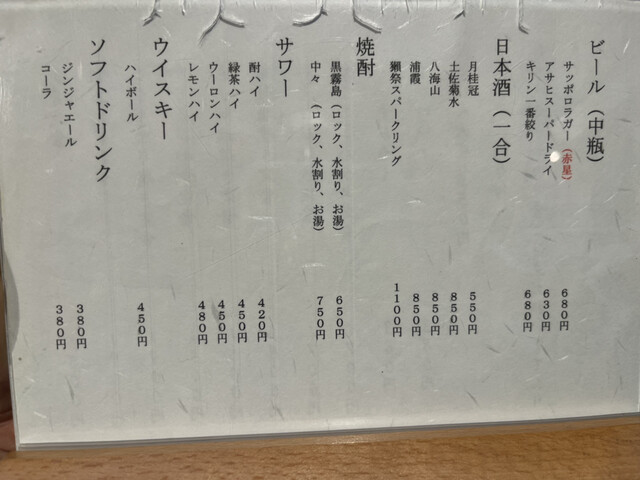 ビール（中瓶）
サッポロラガー（赤星） 680円
アサヒスーパードライ 630円
キリン一番絞り 680円
日本酒（一合）
月桂冠 550円
土佐菊水 850円
八海山 850円
浦霞 850円
獺祭スパークリング 1100円
焼酎
黒霧島（ロック、水割り、お湯） 650円
中々 （ロック、水割り、お湯） 750円
サワー
酎ハイ 420円
緑茶ハイ 450円
ウーロンハイ 450円
レモンハイ 480円
ウイスキー
ハイボール 450円
ソフトドリンク
ジンジャエール 380円
コーラ 380円